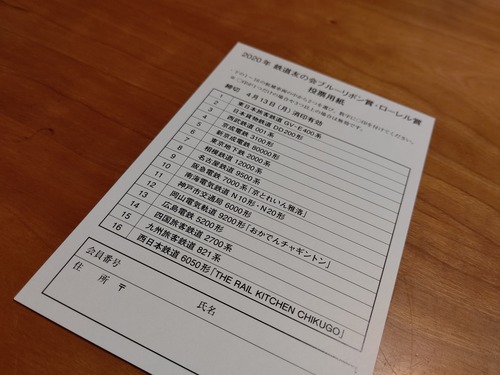 2020年 鉄道友の会ブルーリボン賞・ローレル賞
投票用紙
締切 4月13日(月)消印有効
1 東日本旅客鉄道 GV-E400系
2 日本貨物鉄道 DD200形
3 西武鉄道 001系
4 京成電鉄 3100形
5 新京成電鉄 80000形
6 東京地下鉄 2000系
7 相模鉄道 12000系
8 名古屋鉄道 9500系
9 阪急電鉄 7000系「京とれいん雅洛」
10 南海電気鉄道 N10形・N20形
11 神戸市交通局 6000形
12 岡山電気軌道 9200形「おかでんチャギントン」
13 広島電鉄 5200形
14 四国旅客鉄道 2700系
15 九州旅客鉄道 821系
16 西日本鉄道 6050形「THE RAIL KITCHEN CHIKUGO」
会員番号
住所 〒
氏名